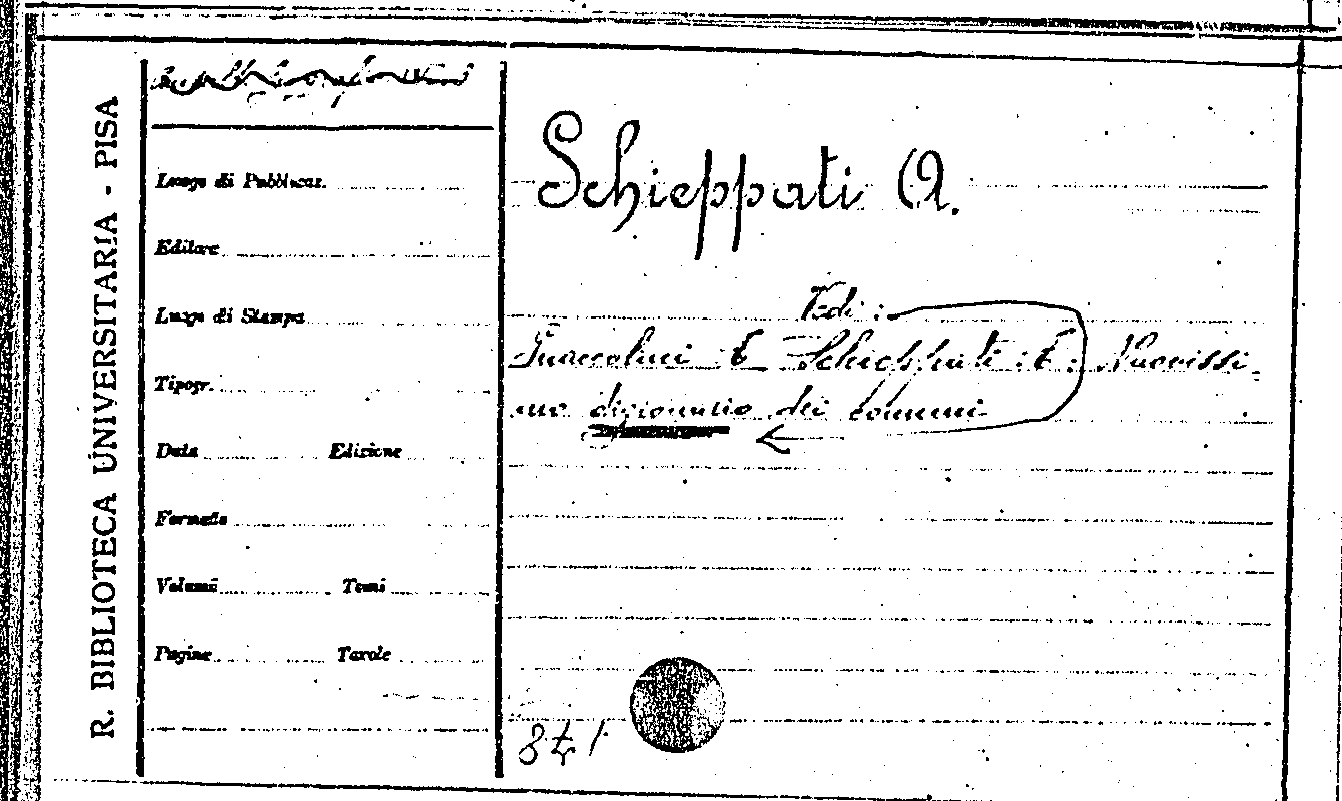 R. BIBLIOTECA UNIVERSITARIA - PISA
Luogo di Pubblicaz.
Editore
Luogo di Stampa
Tipogr.
Data Edizione
Formato
Volumi Tomi
Pagine Tavole
Schieppati A.
Vedi :
E Schieppati : E : Nuovissi-
mo dizionario dei comuni